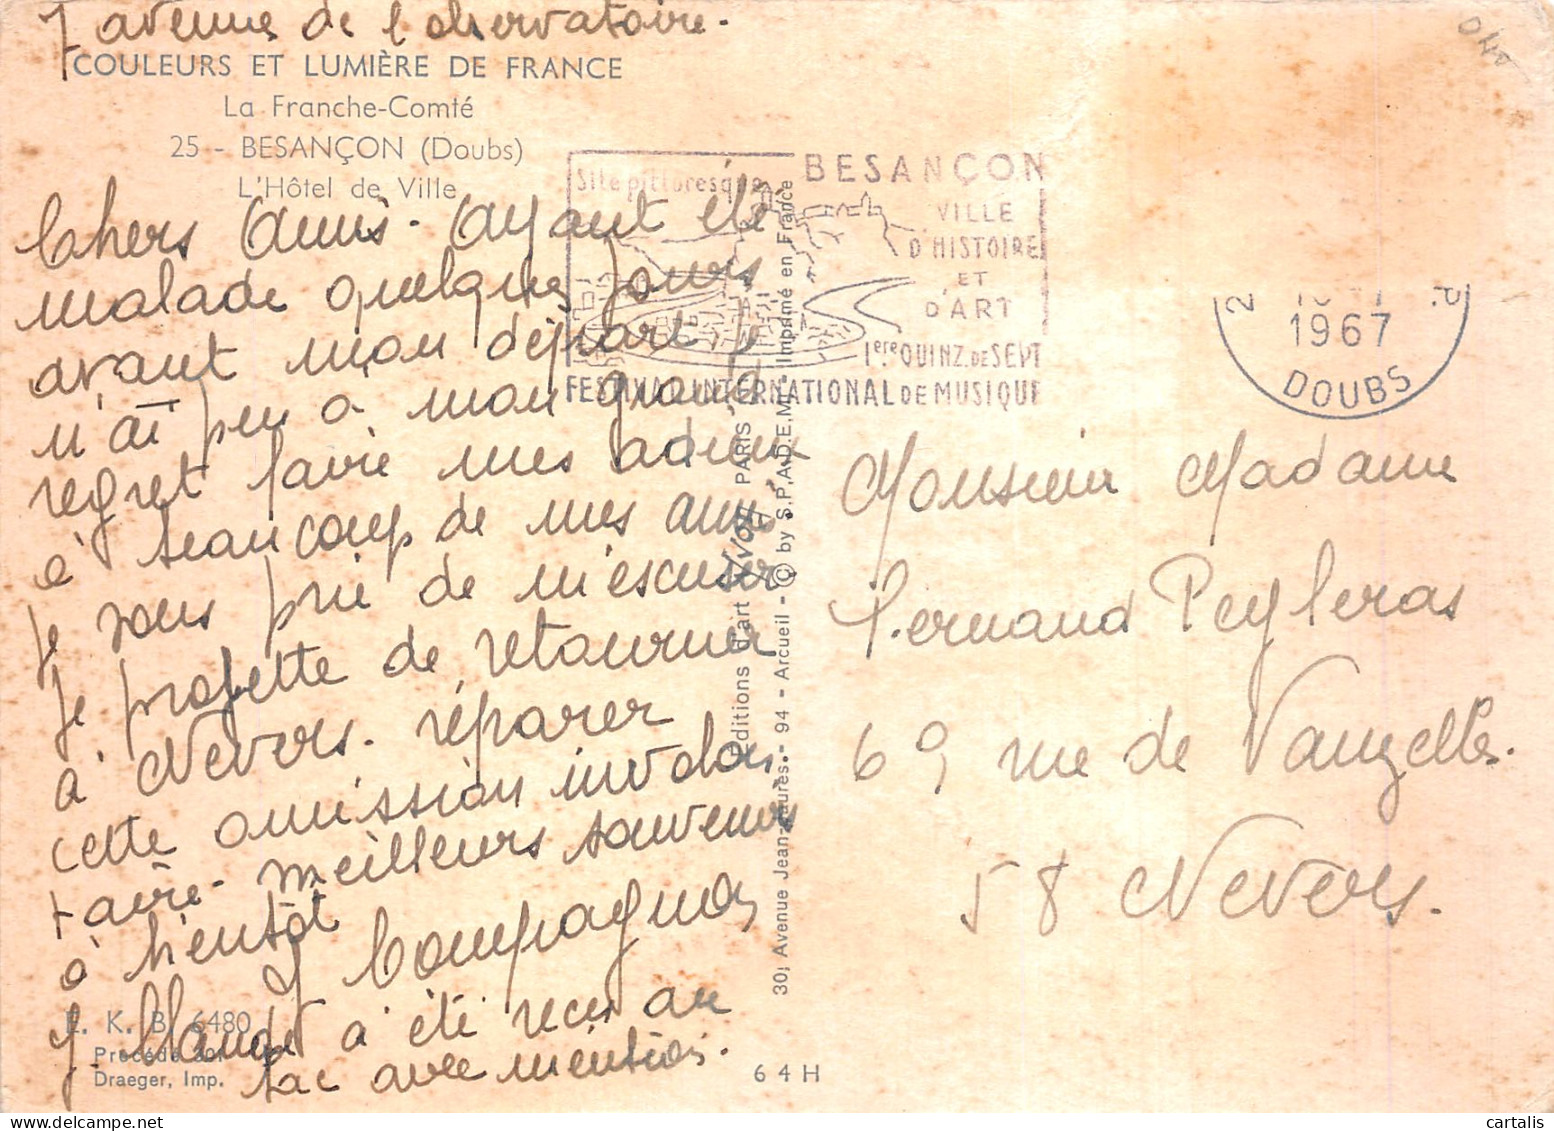 7 avenue de l'observatoire.
COULEURS ET LUMIÈRE DE FRANCE
La Franche-Comté
25 - BESANÇON (Doubs)
L'Hôtel de Ville
Chers Amis. Ayant été
malade quelques jours
avant mon départ, je
n'ai pu à mon grand
regret faire mes adieux
à beaucoup de mes amis
Je vous prie de m'escuser
Je projette de retourner
à Nevers. réparer
cette omission involon
taire. meilleurs souvenirs
à bientôt
J Compagnon
J. Claude a été reçu au
bac avec mention.
E. K. B. 6480
Procédé 301
Draeger, Imp.
64H
Editions d'art YVON, PARIS
30, Avenue Jean-Jaurès - 94 - Arcueil - © by S.P.A.D.E.M. - Imprimé en France
Site pittoresque
BESANÇON
VILLE
D'HISTOIRE
ET
D'ART
1ère QUINZ. DE SEPT
FESTIVAL INTERNATIONAL DE MUSIQUE
1967
DOUBS
Monsieur Madame
Fernand Peyleras
69 rue de Vauzelles.
58 Nevers.
cartalis
delcampe.net